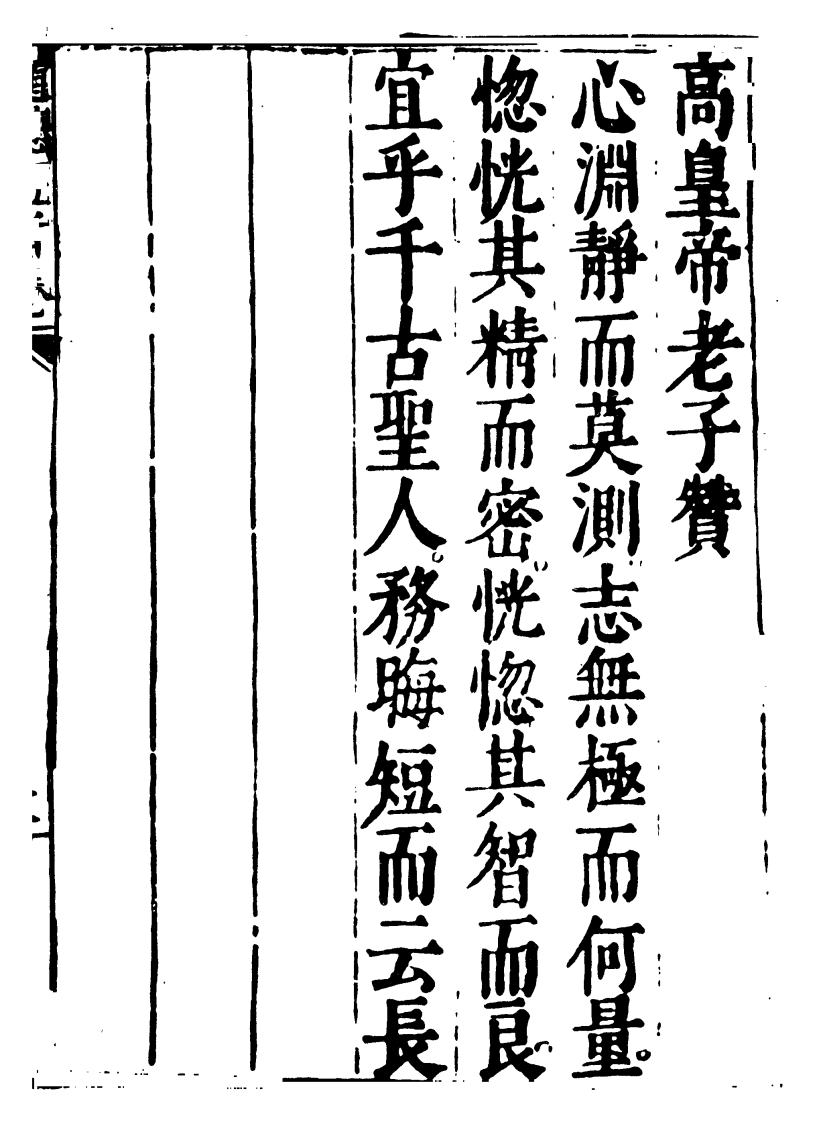 高皇帝老子贊
心淵靜而莫測志無極而何量。
惚恍其精而密。恍惚其智而良。
宜乎千古聖人。務晦短而云長